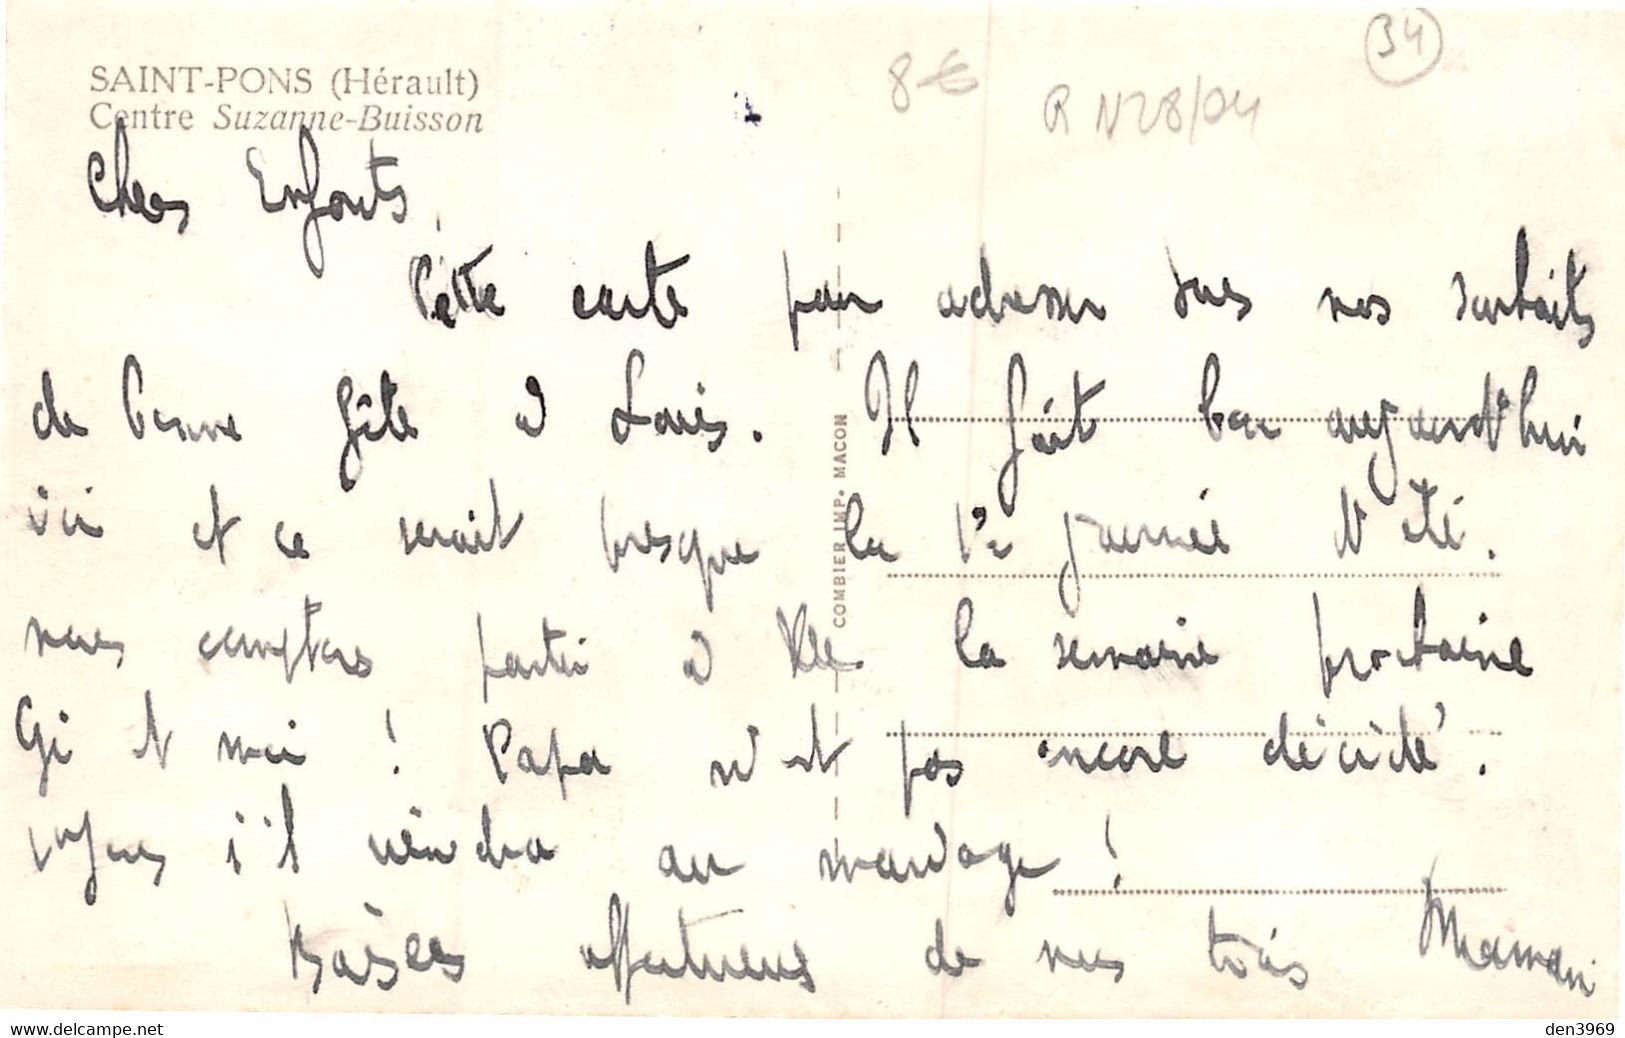 SAINT-PONS (Hérault)
Centre Suzanne-Buisson
8 €
R N28/04
34
Chers Enfants,
Cette carte pour adresser tous nos souhaits
de bonne fête à Louis. Il fait bon aujourd'hui
ici et ce serait presque la 1re journée d'été.
nous comptons partir à la semaine prochaine
Gi et moi ! Papa n'est pas encore décidé.
voyons s'il viendra au mariage !
Baisers affectueux de nous trois Maman
COMBIER IMP. MACON
www.delcampe.net
den3969